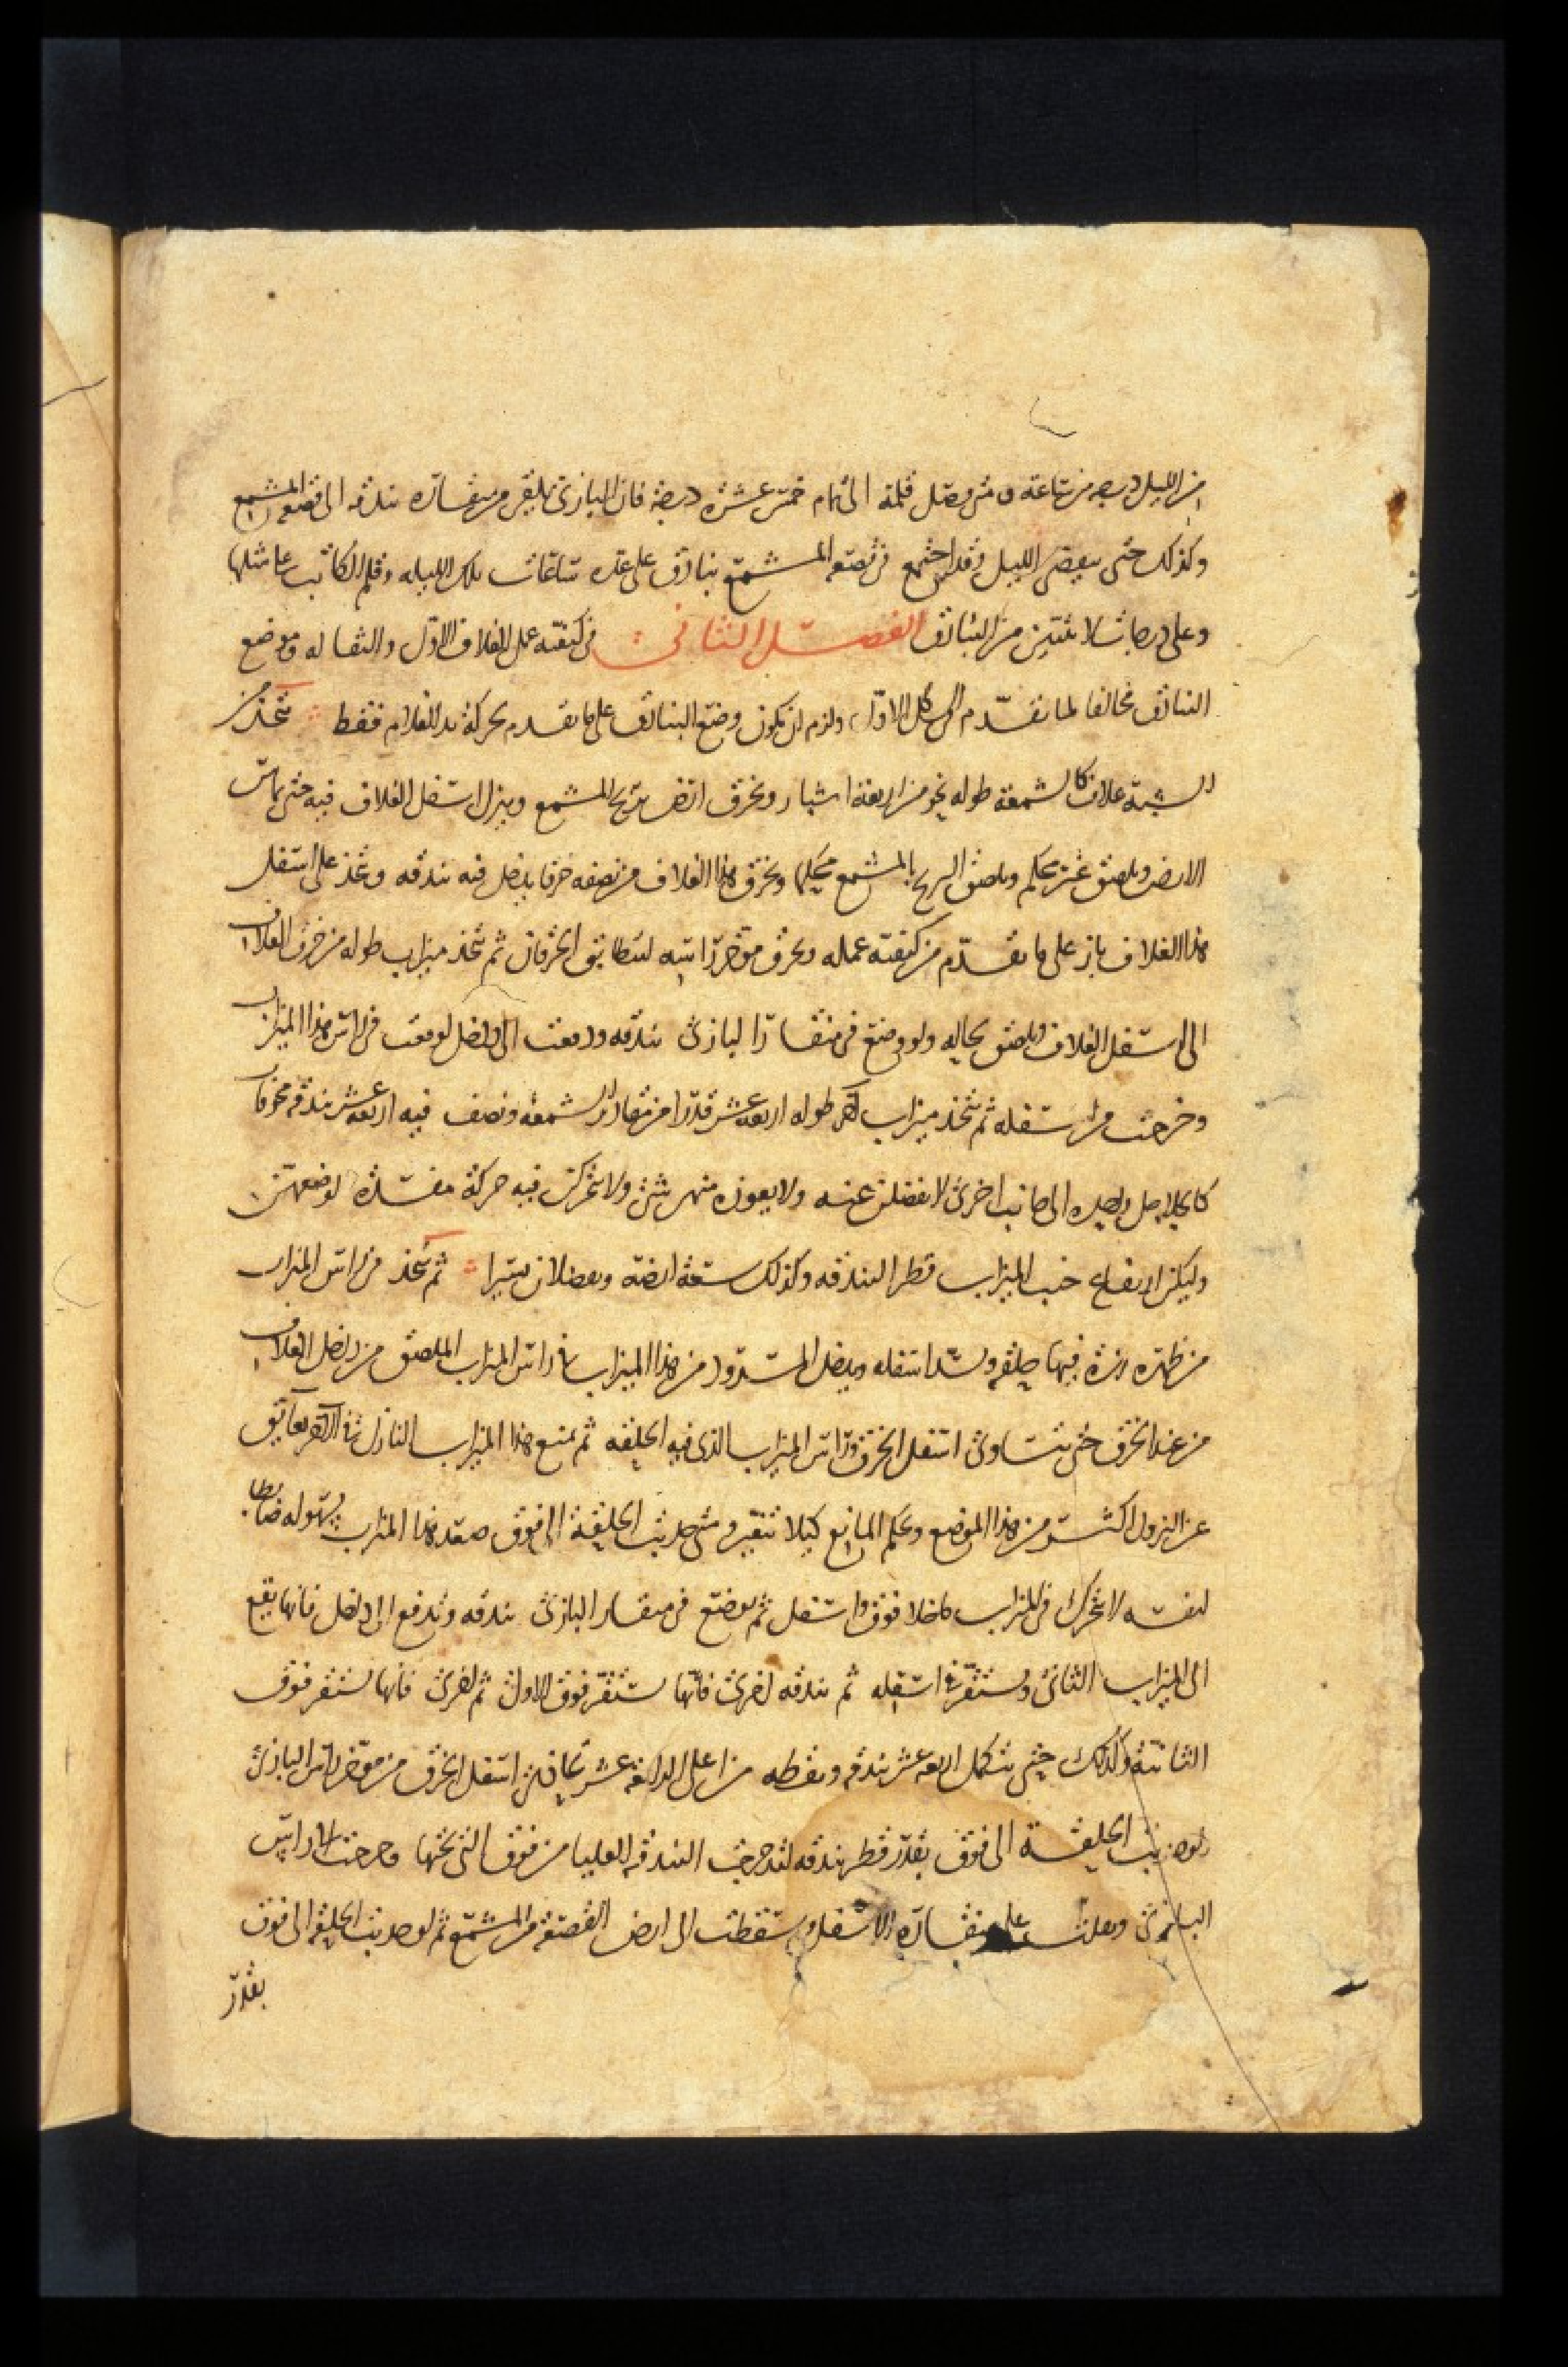 من الليل درجه من ساعة ومتى وصل قلمه الى تمام خمس عشرة درجة فان البازي يلقي من منقاره بندقه الى قصعة المشمع
وكذلك حتى ينقضي الليل وقد اجتمع في قصعه المشمع بنادق على عدد ساعات تلك الليله وقلم الكاتب على مثلها
وعلى درجات لا يتبين من البنادق الفصل الثاني في كيفية عمل الغلاف الاول والثقاله وموضع
البنادق مخالفا لما تقدم في الشكل الاول ولزم ان يكون وضع البنادق على ما تقدم بحركة يد الغلام فقط يتخذ من
الشبه غلاف كالشمعة طوله نحو من اربعة اشبار ويخرق ارض سرج المشمع وينزل اسفل الغلاف فيه حتى يماس
الارض ويلصق غير محكم ويلصق السرج بالمشمع محكما ويخرق هذا الغلاف من نصفه خرقا يدخل فيه بندقه ويتخذ على اسفل
هذا الغلاف باز على ما تقدم من كيفية عمله ويخرق موخر راسه ليتطابق الخرقان ثم يتخذ ميزاب طوله من خرق الغلاف
الى اسفل الغلاف ويلصق بحاله ولو وضع في منقار البازي بندقه ودفعت الى داخل لوقعت في راس هذا الميزاب
وخرجت من اسفله ثم يتخذ ميزاب اخر طوله اربعة عشر قدرا من مقادير الشمعة ونصف فيه اربعة عشر بندقه
واحده الى جانب اخرى لا يفضلن عنه ولا يعوزه منهن شئ ولا يتحركن فيه حركة مفسدة لوضعهن
وليكن ارتفاع جنب الميزاب قطر البندقه وكذلك سعة ارضه ويفضلان يسيرا ثم يتخذ في راس الميزاب
من ظهره رزة فيها حلقه ويسد اسفله ويدخل المسدود من هذا الميزاب في راس الميزاب الملصق من داخل الغلاف
من عند الخرق حتى يتساوى اسفل الخرق وراس الميزاب الذي فيه الحلقه ثم يمنع هذا الميزاب النازل في الاخر بعايق
عن النزول اكثر من هذا الموضع ويحكم المانع كيلا يتغير ومتى جذبت الحلقة الى فوق صعد هذا الميزاب بسهوله ضابطا
لنفسه لا يتحرك في الميزاب ما خلا فوق واسفل ثم يوضع في منقار البازي بندقه وتدفع الى داخل فانها تقع
الى الميزاب الثاني وتستقر في اسفله ثم بندقه اخرى فانها تستقر فوق الاولى ثم اخرى فانها تستقر فوق
الثانية وكذلك حتى تتكمل اربعة عشر بندقه ونقطه من اعلى الرابعة عشر تحاذي اسفل الخرق من موخر راس البازي
ولو جذبت الحلقة الى فوق بقدر قطر بندقه لتدحرجت البندقه العليا من فوق التي تحتها وخرجت الى راس
البازي ونفذت على منقاره الاسفل وسقطت الى ارض القصعة من المشمع ثم لو جذبت الحلقة الى فوق
بقدر